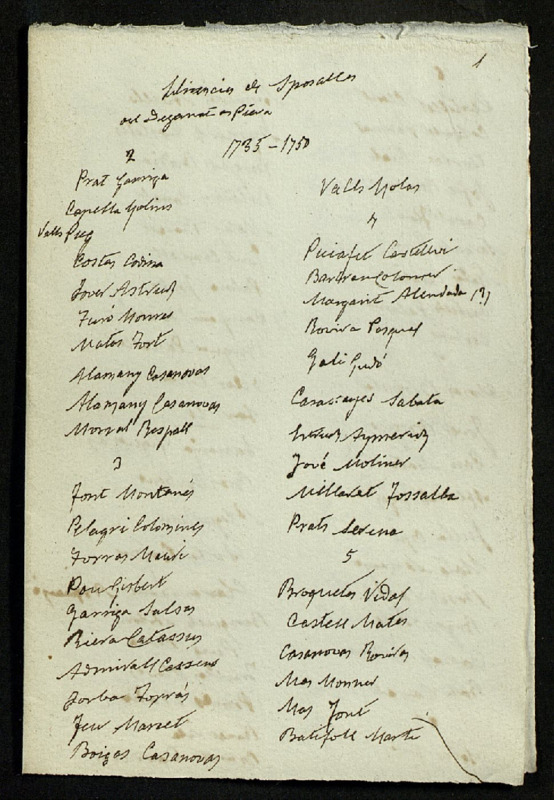 1
Llicencies de Sposalles
del Deganat de Piera
1735-1750
2
Prat Garriga
Capella Molins
Valls Puig
Costas Codina
Jover Astruch
Juvé Monrós
Mates Font
Alamany Casanovas
Alamany Casanovas
Morral Respall
3
Font Montanés
Pelagri Colomines
Torras Mauri
Pou Gisbert
Garriga Salses
Riera Catassus
Admirall Cassens
Jorba Toprás
Feu Marcet
Boigas Casanovas
Valls Molas
4
Puciafet Castellvi
Bartran Colomer
Margarit Almudada (?)
Rovira Pasqual
Gali Gudó
Casacages Sabata
Esteruch Aymerich
Jové Moliner
Millaret Fossalba
Prats Serena
5
Broquetes Vidal
Castell Mates
Casanovas Roviras
Mas Monner
Mas Font
Batifoll Marti